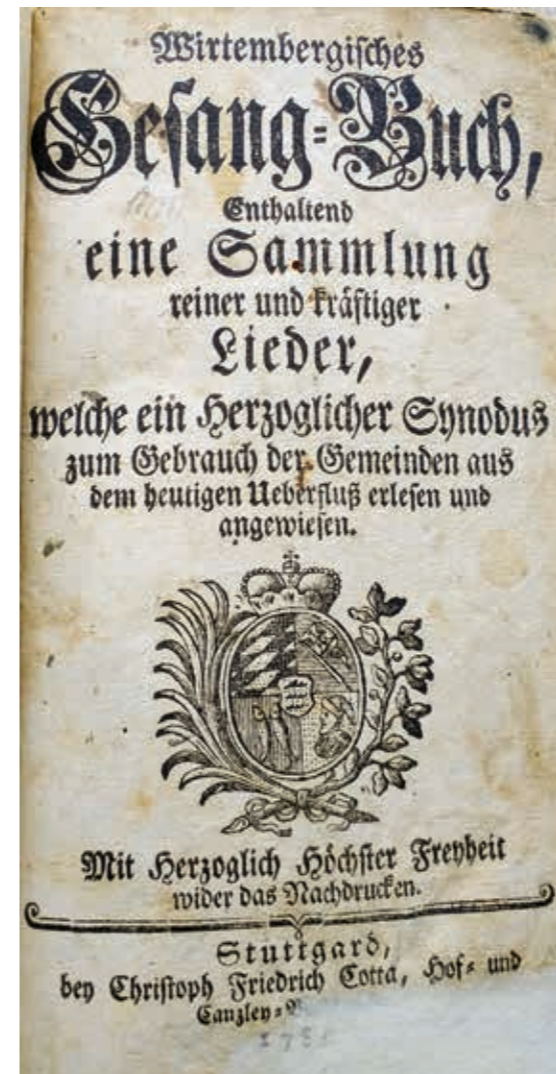 Wirtembergisches
Gesang-Buch,
Enthaltend
eine Sammlung
reiner und kräftiger
Lieder,
welche ein Herzoglicher Synodus
zum Gebrauch der Gemeinden aus
dem heutigen Ueberfluß erlesen und
angewiesen.
Mit Herzoglich Höchster Freyheit
wider das Nachdrucken.
Stuttgard,
bey Christoph Friedrich Cotta, Hof- und
Canzley-